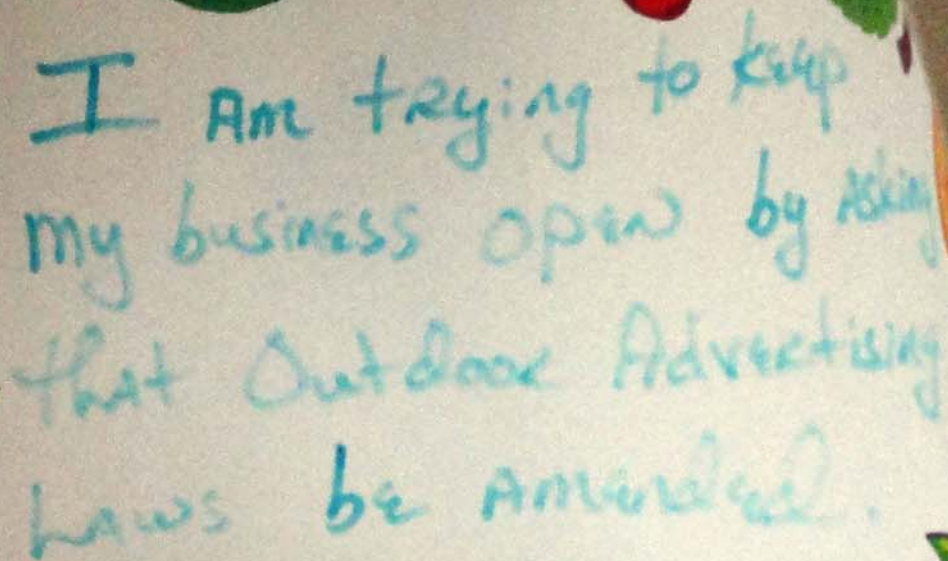 I Am trying to keep
my business open by Asking
that Outdoor Advertising
Laws be Amended.